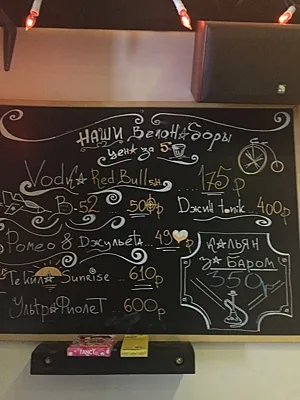 НАШИ ВелоНаборы
цена за 5
Vodka Red Bull 5sh. .... 175р
В-52 ... 500р
Джин tonik... 400р
Ромео & Джульета... 49
Текила Sunrise ... 610р
УльтраФиолет ... 600р
КАЛЬЯН
за БАРОМ
350р